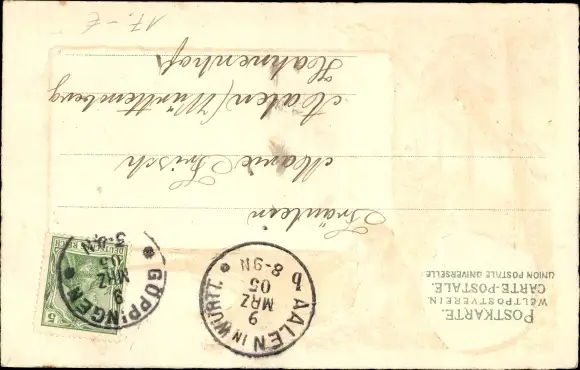 POSTKARTE.
WELTPOSTVEREIN.
CARTE-POSTALE.
UNION POSTALE UNIVERSELLE
5
DEUTSCHES REICH
GÖPPINGEN
9
MRZ
05
5-6 N
AALEN IN WÜRTT.
9
MRZ
05
8-9N
b
Fräulein
Marie Frisch
Aalen (Württemberg
Hahnenhof
17.-€